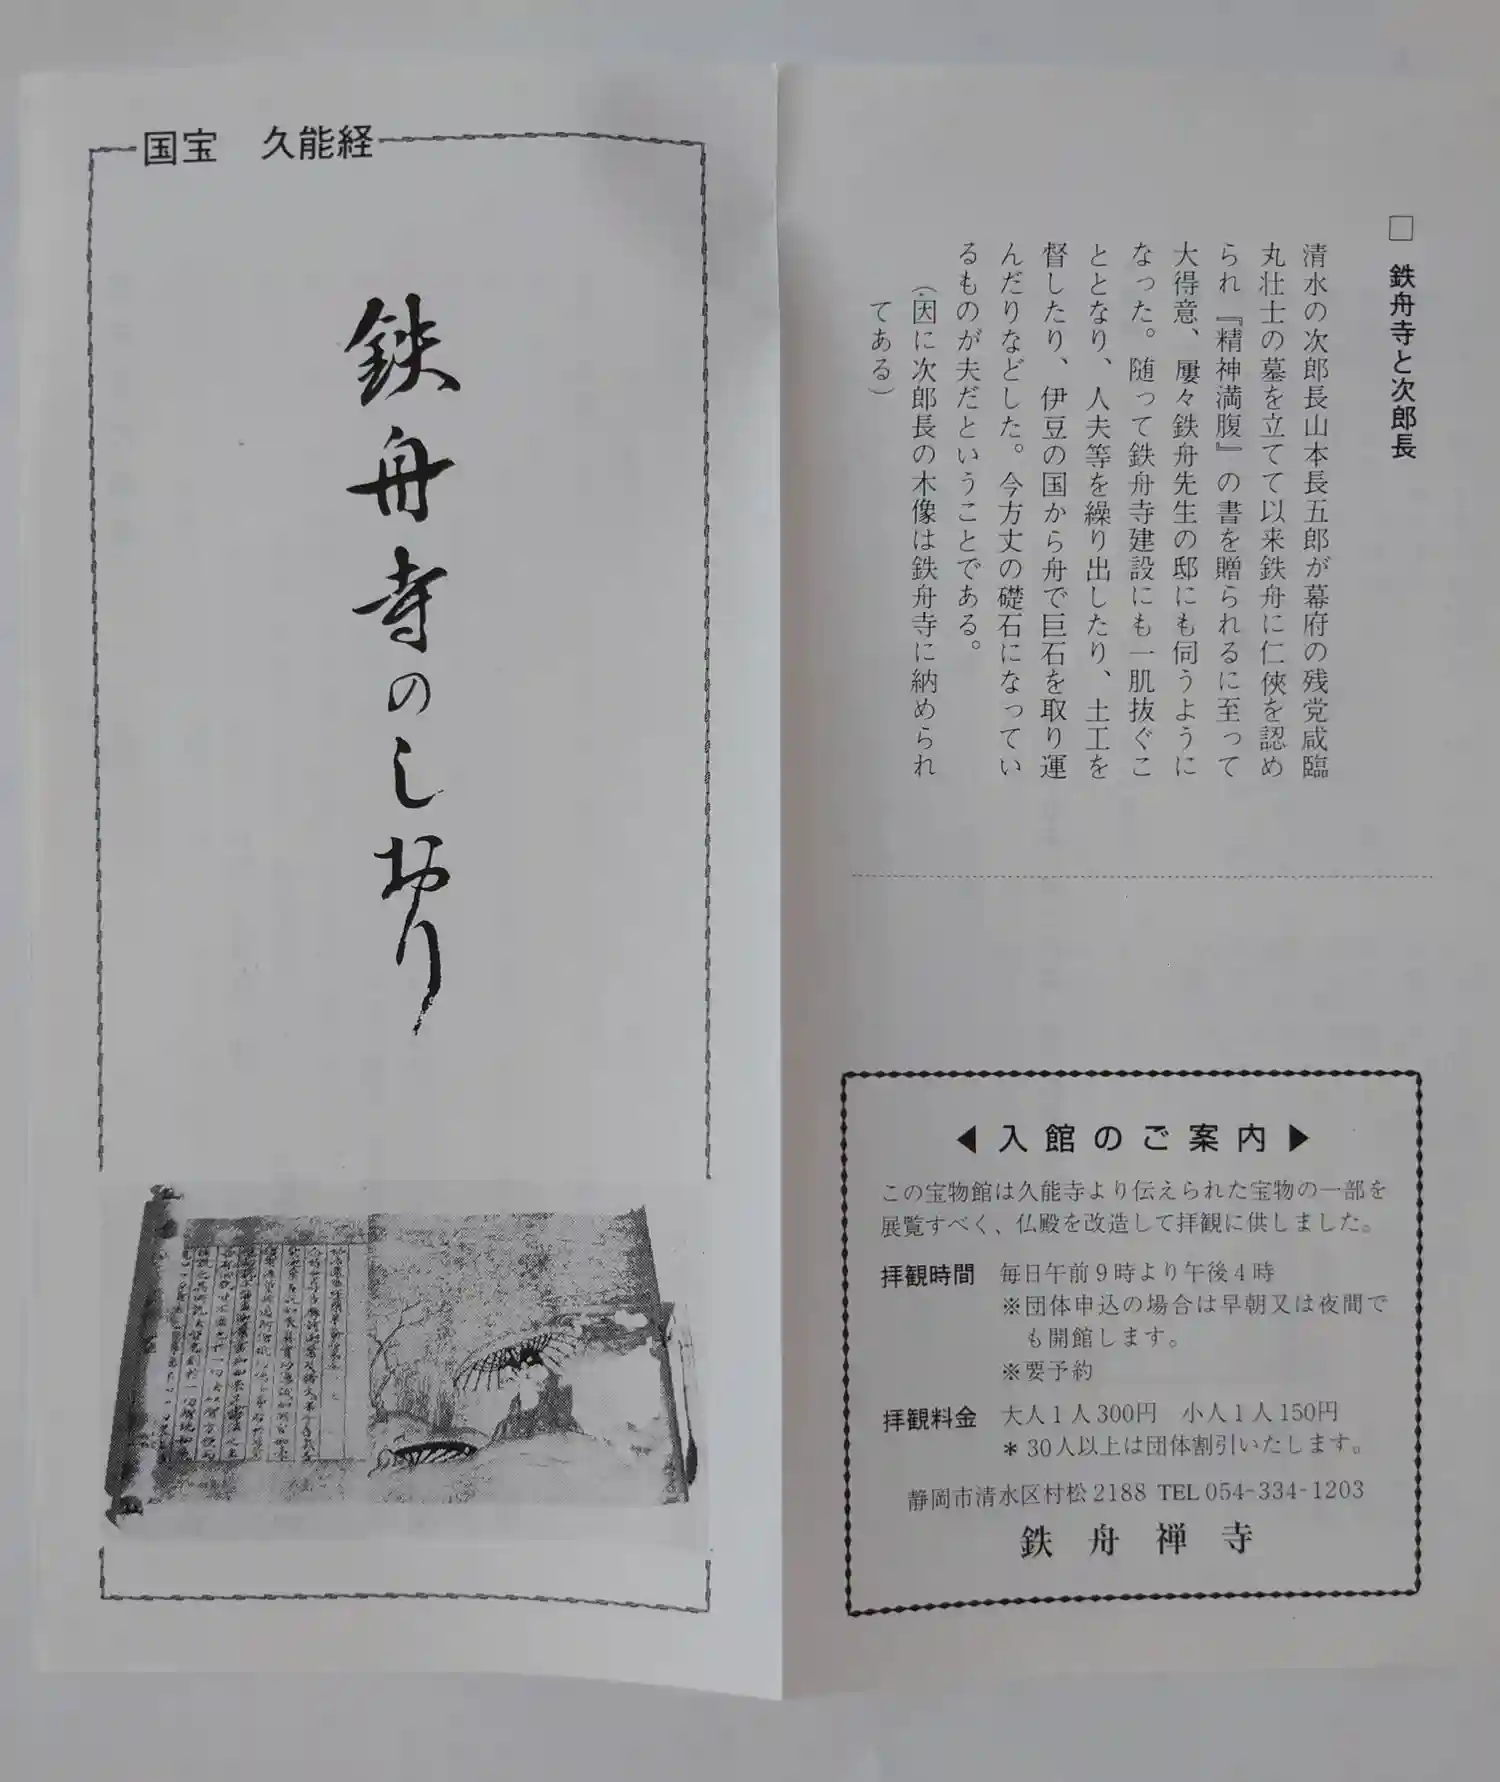 国宝 久能経
鉄舟寺のしおり
□ 鉄舟寺と次郎長
清水の次郎長山本長五郎が幕府の残党咸臨
丸壮士の墓を立てて以来鉄舟に仁侠を認め
られ『精神満腹』の書を贈られるに至って
大得意、屢々鉄舟先生の邸にも伺うように
なった。随って鉄舟寺建設にも一肌抜ぐこ
ととなり、人夫等を繰り出したり、土工を
督したり、伊豆の国から舟で巨石を取り運
んだりなどした。今方丈の礎石になってい
るものが夫だということである。
(因に次郎長の木像は鉄舟寺に納められ
てある)
◀入館のご案内▶
この宝物館は久能寺より伝えられた宝物の一部を
展覧すべく、仏殿を改造して拝観に供しました。
拝観時間 毎日午前9時より午後4時
※団体申込の場合は早朝又は夜間で
も開館します。
※要予約
拝観料金 大人1人300円 小人1人150円
*30人以上は団体割引いたします。
静岡市清水区村松2188 TEL054-334-1203
鉄舟禅寺